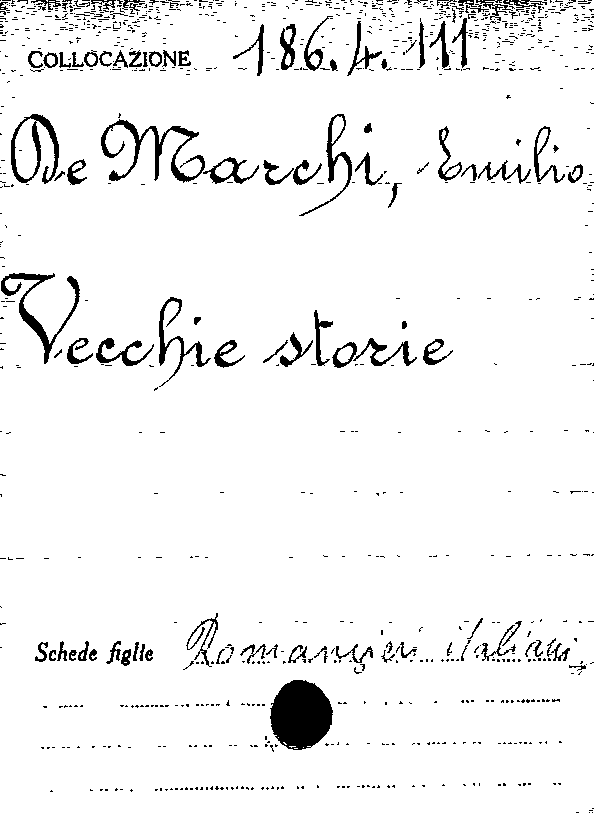 COLLOCAZIONE 186.4.111
De Marchi, Emilio
Vecchie storie
Schede figlie Romanzieri italiani